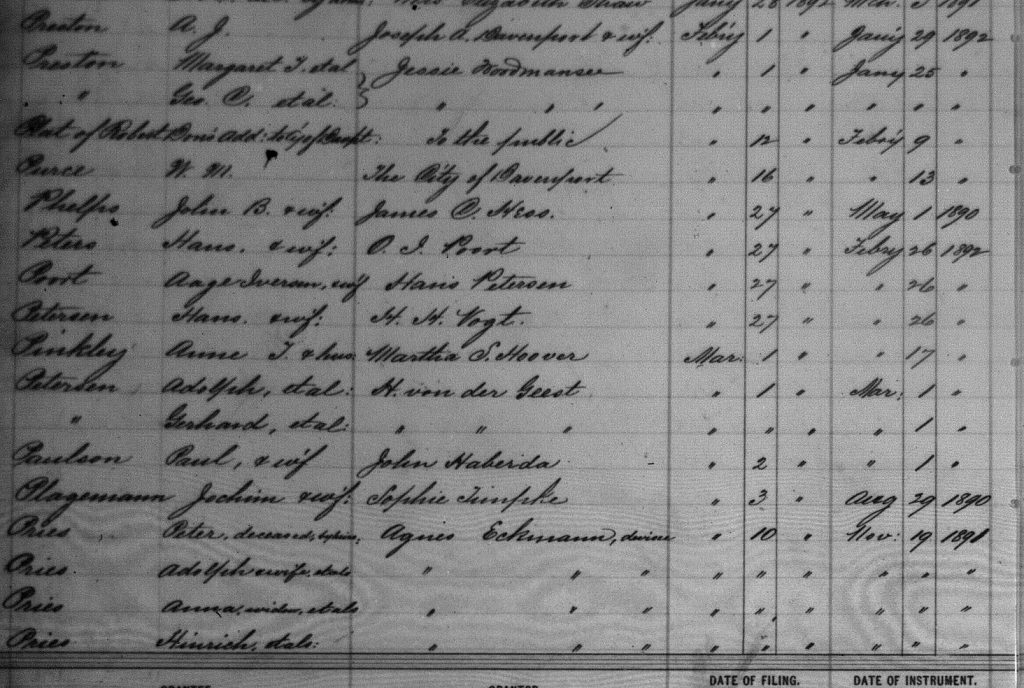 Elizabeth Shaw Jany 28 1892 Mch. 5 1891
Preston A. J. Joseph A. Davenport & wif: Feb'ry 1 " Jan'y 29 1892
Preston Margaret T. etal } Jessie Woodmansee " 1 " Jany 25 "
" Geo. C. etal: " " " " " " " " "
Plat of Robert Don's Add: to City of Davpt: To the public " 12 " Feb'ry 9 "
Purce W. M. The City of Davenport " 16 " " 13 "
Phelps John B. & wif: James C. Hess. " 27 " May 1 1890
Peters Hans. & wif: O. I. Poort " 27 " Feb'ry 26 1892
Poort Aage Iversen, wif Hans Petersen " 27 " " 26 "
Petersen Hans. & wif: H. H. Vogt. " 27 " " 26 "
Pinkley Anne T. & hus: Martha S. Hoover Mar: 1 " " 17 "
Petersen Adolph, etal: H. von der Geest " 1 " Mar: 1 "
" Gerhard, etal: " " " " " " " 1 "
Paulson Paul, & wif John Haberda " 2 " " 1 "
Plagemann Jochim & wif: Sophie Timpke " 3 " Aug 29 1890
Pries Peter, deceased, Agnes Eckmann, devisee " 10 " Nov: 19 1891
Pries Adolph & wife, etals " " " " " " " " "
Pries Anna, widow, etals " " " " " " " " "
Pries Hinrich, etals: " " " " " " " " "
DATE OF FILING. DATE OF INSTRUMENT.